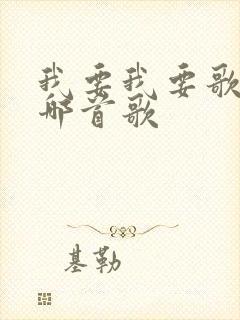 我要我要歌
哪首歌
基勒